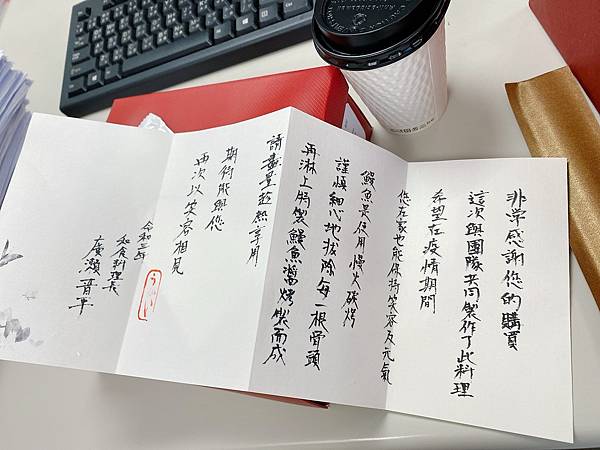 非常感謝您的購買
這次與團隊共同製作了此料理
希望在疫情期間
您在家也能保持笑容及元氣
鰻魚是使用慢火碳烤
謹慎細心地拔除每一根骨頭
再淋上特製鰻魚醬烤製而成
請盡量趁熱享用
期待能與您
再次以笑容相見
令和三年
和食料理長
廣瀨晋平